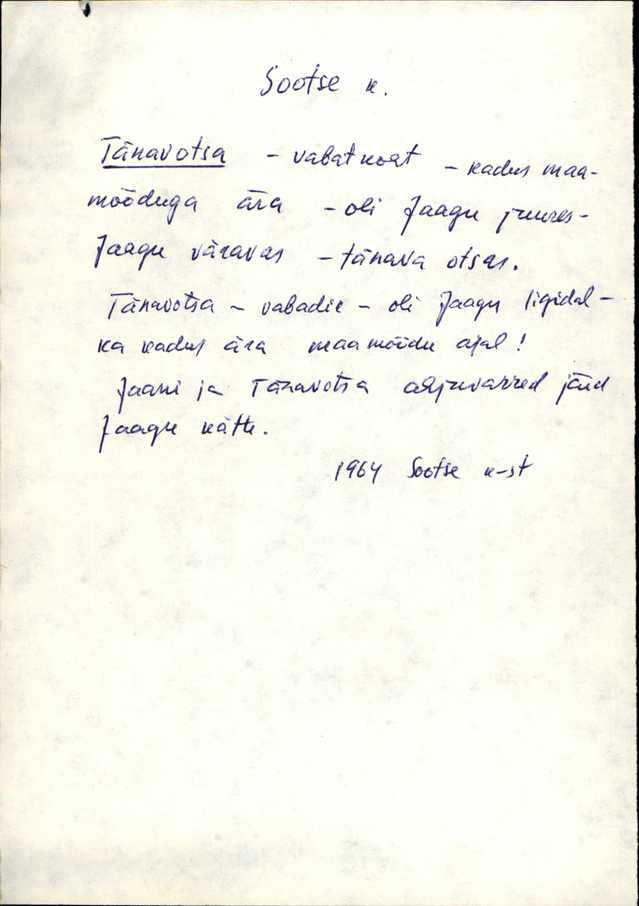 Sootse k.
Tänavotsa - vabatkoht - kadus maa-
mõõduga ära - oli Jaagu juures -
Jaagu väravas - tänava otsas.
Tänavotsa - vabadik - oli Jaagu ligidal -
ka kadus ära maamõõdu ajal!
Jaani ja Tänavotsa asjuvarred jäid
Jaagu kätte.
1964 Sootse k-st